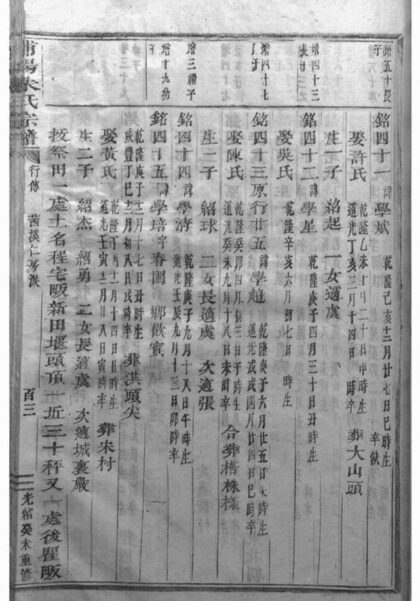 增五十長子
銘四十一諱學斌 乾隆己亥十二月廿七日巳時生 卒缺
娶許氏 乾隆乙未十月二日申時生 道光丁亥三月十四日時卒 葬大山頭
生一子 紹起 一女適虞
增四十三長子
銘四十二諱學星 乾隆庚子四月三十日丑時生
娶吳氏 乾隆辛亥六月初七日 時生
增四十七長子
銘四十三原行廿五諱學遊 乾隆庚子六月廿五日未時生 道光戊戌四月廿四日巳時卒
娶陳氏 乾隆癸卯四月初三日子時生 道光癸未九月十八日未時卒 合葬榙株樣
生一子 紹球 二女長適虞 次適張
增三禮子
銘四十四諱學濟 乾隆庚子九月十八日午時生 道光壬辰九月十三日卯時卒
增十九幼子
銘四十五諱學培字春圃 鄉飲賓 乾隆庚子十二月十日丑時生 咸豐丁巳十二月初八日戌時卒 葬洪頭尖
娶黃氏 道光壬寅十二月廿八日寅時卒 葬宋村
生二子 紹杰 紹勇 二女長適虞 次適城裏嚴
撥祭田一處土名程宅畈新田堰頭頂一近三十秤又一處後瞿畈
浦陽朱氏宗譜
行傳
茜溪仁房派
百三
光緒癸未重修